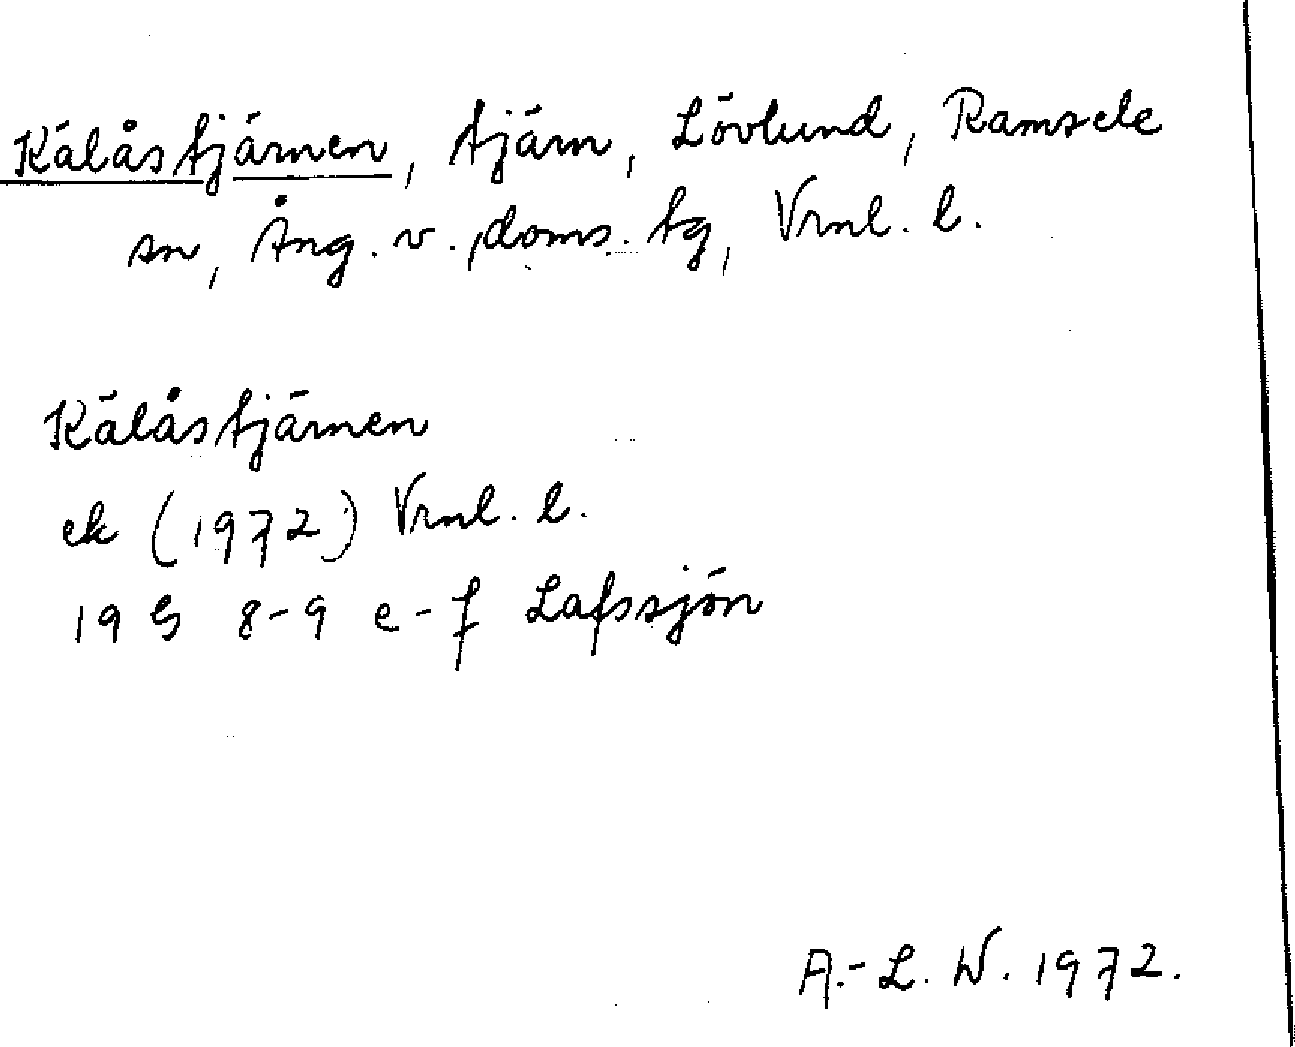 Kälåstjärnen, tjärn, Lövlund, Ramsele
sn, Ång. v. doms. tg, Vrnl. l.
Kälåstjärnen
ek (1972) Vrnl. l.
19 G 8-9 e-f Lafssjön
A.-L. W. 1972.